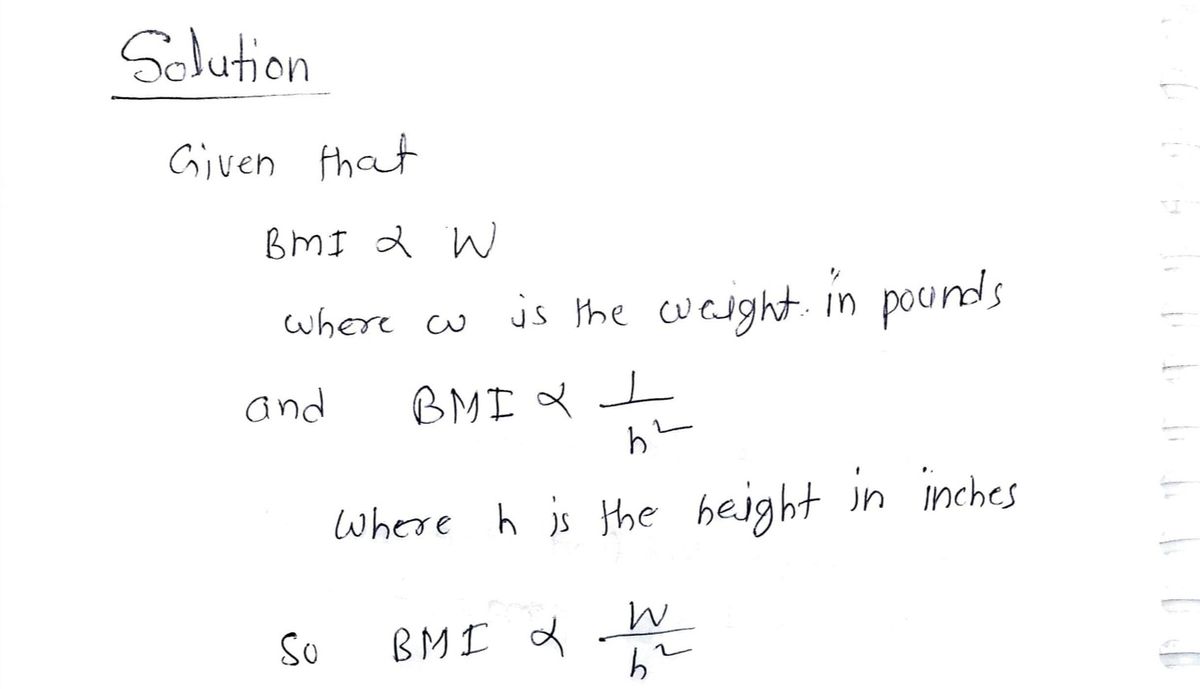 Solution
Given that
BMI ∝ W
where w is the weight. in pounds
and BMI ∝ 1/h²
Where h is the height in inches
So BMI ∝ W/h²